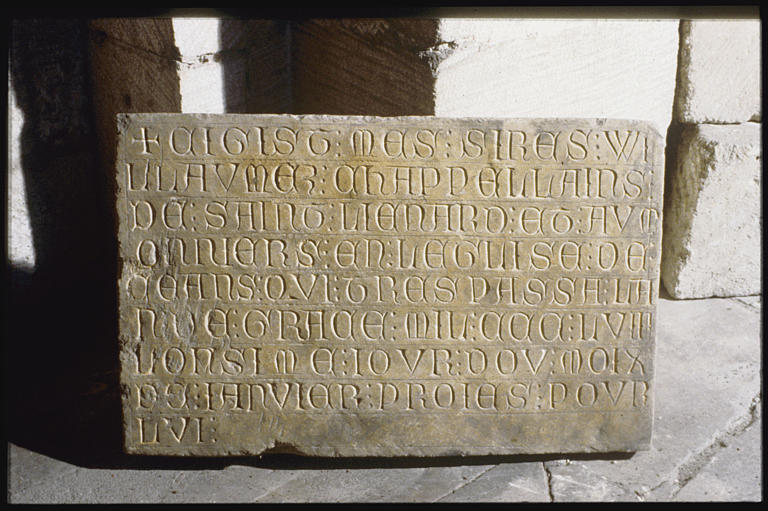 + CIGIST : MES : SIRES : WI
LLAVMEZ : CHAPPELLAINS :
DE : SAINT : LIENARD : ET : AVM
ONNIERS : EN : LEGLISE : DE :
CEANS : QVI : TRESPASSA : LAN
DE : GRACE : MIL : CCC : LVIII
LONSIME : IOVR : DOV : MOIX
DE : IANVIER : PROIES : POVR
LVI :